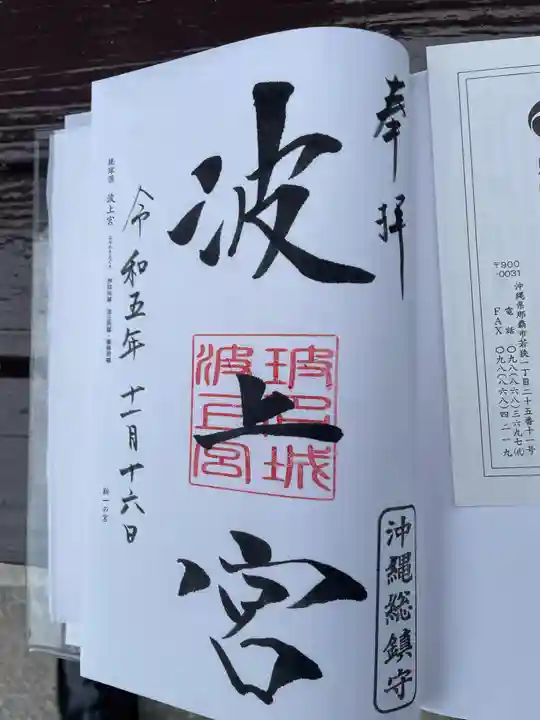 奉拝
波上宮
玻名城
波上宮
沖縄総鎮守
令和五年 十一月十六日
琉球国 波上宮
〒900-0031
沖縄県那覇市若狭一丁目二十五番十一号
電話 〇九八(八六八)三六九七(代)
FAX 〇九八(八六八)四二一九